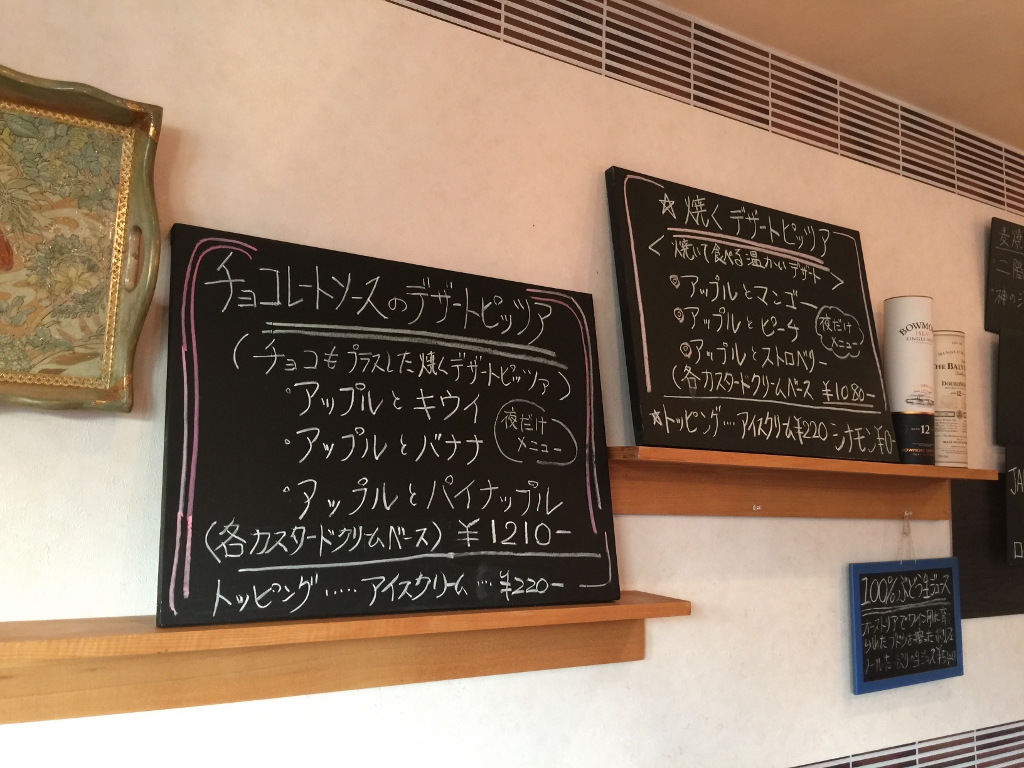 チョコレートソースのデザートピッツァ
(チョコもプラスした焼くデザートピッツァ)
・アップルとキウイ
・アップルとバナナ
・アップルとパイナップル
夜だけ
メニュー
(各カスタードクリームベース) ¥1210-
トッピング.....アイスクリーム...¥220-
☆焼くデザートピッツァ
<焼いて食べる温かいデザート>
アップルとマンゴー
アップルとピーチ
アップルとストロベリー
夜だけ
メニュー
(各カスタードクリームベース ¥1080-
☆トッピング...アイスクリーム¥220 シナモン¥0-
BOWMORE
ISLAY
SINGLE MALT
12
THE BALVENIE
DOUBLEWOOD
12
100%ぶどう生ジュース
JA